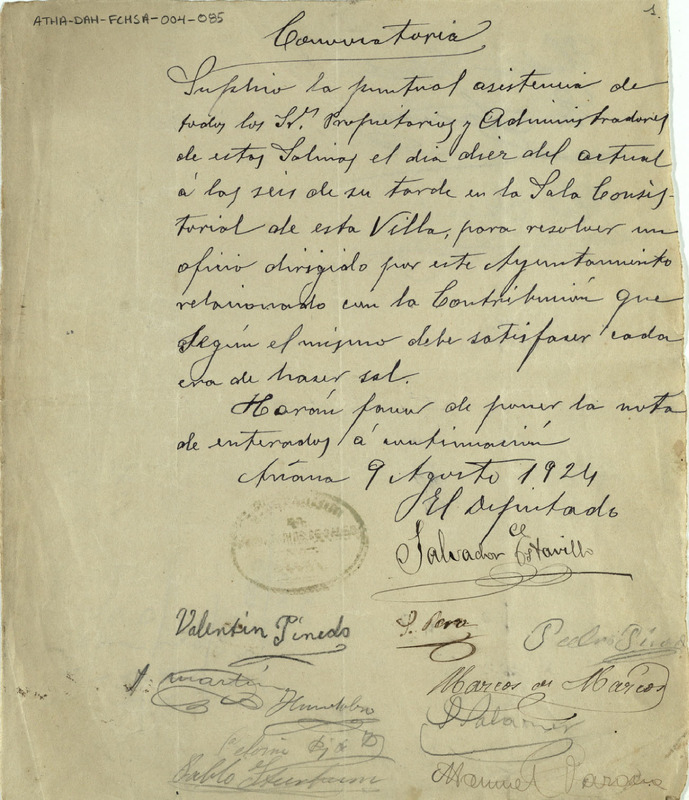 ATHA-DAH-FCHSA-004-085
1.
Convocatoria
Suplico la puntual asistencia de
todos los Srs Propietarios y Administradores
de estas Salinas el dia diez del actual
á las seis de su tarde en la Sala Consis-
torial de esta Villa, para resolver un
oficio dirigido por este Ayuntamiento
relacionado con la Contribución que
según el mismo debe satisfaser cada
era de haser sal.
Harán favor de poner la nota
de enterados á continuación
Añana 9 Agosto 1924
El Diputado
Salvador Estavillo
Valentín Pinedo
Pedro
Martín
Marcos de Marcos
Pablo
Manuel Vargas